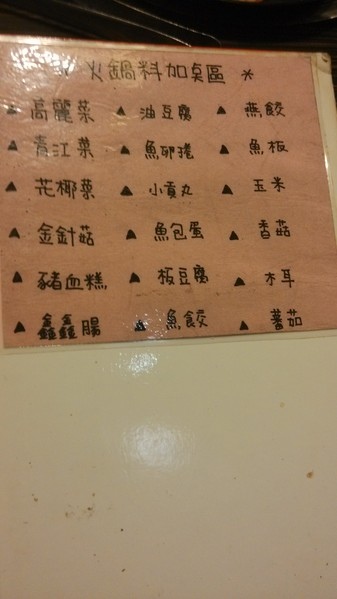 * 火鍋料加桌區 *
▲ 高麗菜 ▲ 油豆腐 ▲ 燕餃
▲ 青江菜 ▲ 魚卵捲 ▲ 魚板
▲ 花椰菜 ▲ 小貢丸 ▲ 玉米
▲ 金針菇 ▲ 魚包蛋 ▲ 香菇
▲ 豬血糕 ▲ 板豆腐 ▲ 木耳
▲ 鑫鑫腸 ▲ 魚餃 ▲ 蕃茄